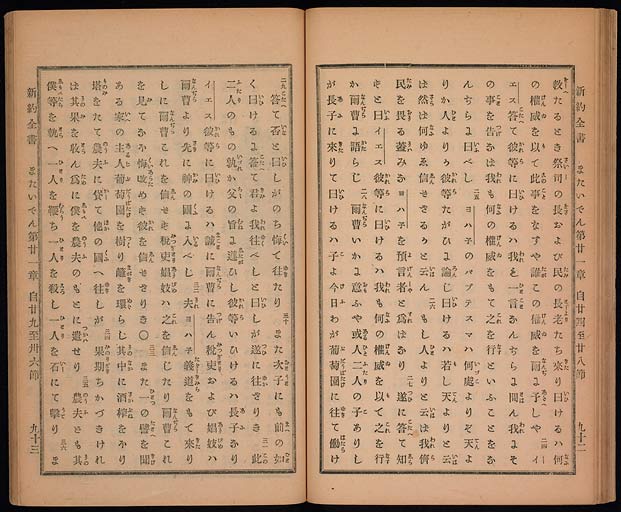 新約全書　またいでん第廿一章　自廿四至廿八節　九十二
教たるとき祭司の長および民の長老たち來り曰けるハ何
の權威を以て此事をなすや誰この權威を爾に予しや 二四 イ
エス答て彼等に曰けるハ我も一言なんぢらに問ん我にそ
の事を告なば我も何の權威をもて之を行といふことをな
んぢらに曰べし 二五 ヨハ子のバプテスマハ何處よりぞ天よ
りか人よりか彼等たがひに論じ曰けるハ若し天よりと云
は然ば何ゆゑ信ぜざるかと云ん 二六 もし人よりと云は我儕
民を畏る蓋みなヨハ子を預言者と爲ばなり 二七 遂に答て知
ずと曰イエス彼等に曰けるハ我も何の權威を以て之を行
か爾曹に語らじ 二八 爾曹いかに意ふや或人二人の子ありし
が長子に來りて曰けるハ子よ今日わが葡萄園に往て働け
新約全書　またいでん第廿一章　自廿九至卅六節　九十三
二九 答て否と曰しがのち悔て往たり 三十 また次子にも前の如
く曰けるに答て君よ我往べしと曰しが遂に往ざりき 三一 此
二人のもの孰か父の旨に遵ひし彼等いひけるハ長子なり
イエス彼等に曰けるハ誠に爾曹に告ん稅吏および娼妓ハ
爾曹より先に神の國に入べし 三二 夫ヨハ子義道をもて來り
しに爾曹これを信ぜず稅吏娼妓ハこれを信じたり爾曹これ
を見てなほ悔改めず彼を信ぜざりき〇 三三 また一の譬を聞
ある家の主人葡萄園を樹り籬を環らし其中に酒榨をほり
塔をたて農夫に貸て他の國へ往しが 三四 果期ちかづきけれ
ば其果を收ん爲に僕を農夫のもとに遣せり 三五 農夫ども其
僕等を執へ一人を鞭ち一人を殺し一人を石にて擊り 三六 ま